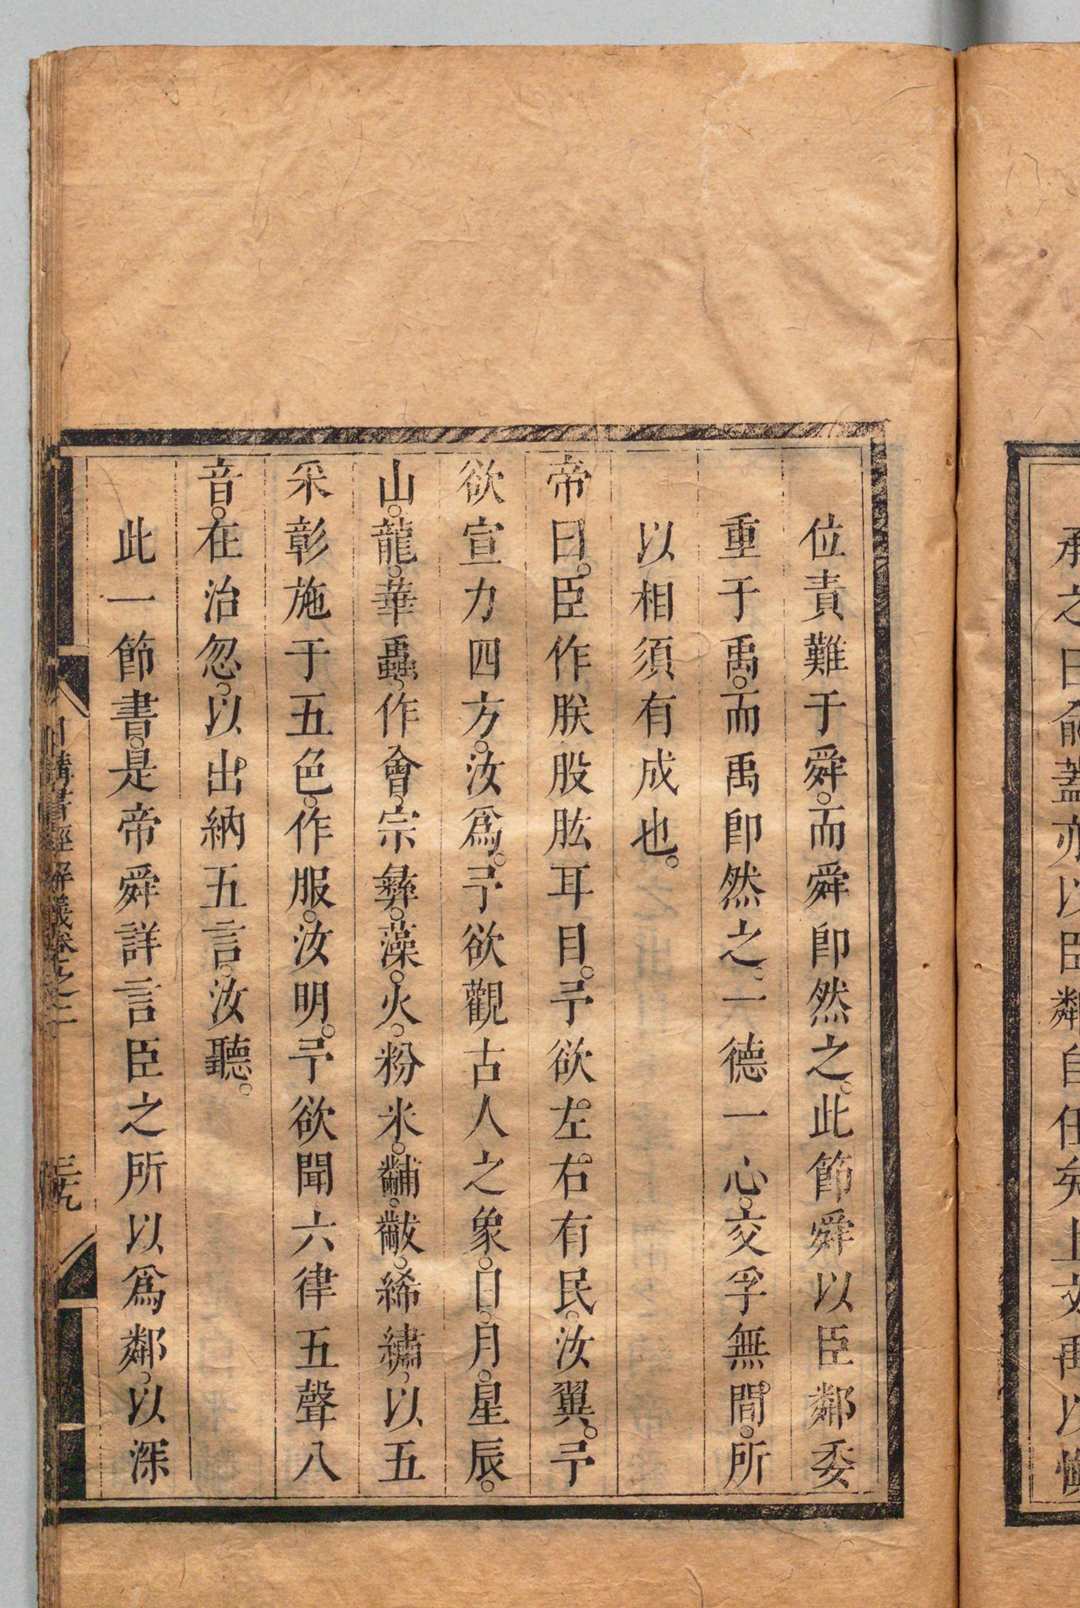 承之曰俞蓋亦以臣鄰自任矣上文禹以愼
位責難于舜。而舜卽然之。此節舜以臣鄰委
重于禹。而禹卽然之。一德一心。交孚無間。所
以相須有成也。
帝曰。臣作朕股肱耳目。予欲左右有民。汝翼。予
欲宣力四方。汝爲。予欲觀古人之象。日。月。星辰。
山。龍。華蟲。作會。宗彝。藻。火。粉米。黼。黻。絺繡。以五
采彰施于五色。作服。汝明。予欲聞六律五聲八
音。在治忽。以出納五言。汝聽。
此一節書。是帝舜詳言臣之所以爲鄰。以深
日講書經解義卷之二
三九